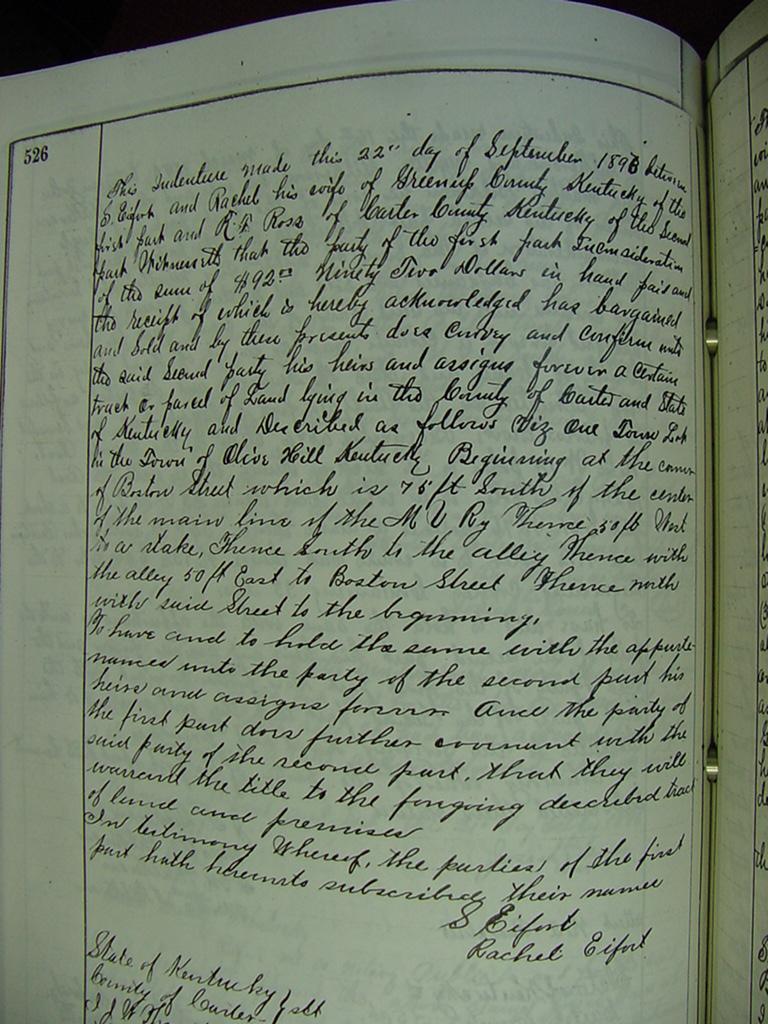 526
This Indenture made this 22" day of September 1893 between
S. Eifort and Rachel his wife of Greenup County Kentucky of the
first part and R. T. Ross of Carter County Kentucky of the Second
part Witnesseth that the party of the first part Inconsideration
of the sum of $92.00 Ninety Two Dollars in hand paid and
the receipt of which is hereby acknowledged has bargained
and Sold and by these presents does Convey and confirm unto
the said Second party his heirs and assigns forever a Certain
track or parcel of Land lying in the County of Carter and State
of Kentucky and Described as follows Viz One Town Lot
in the Town of Olive Hill Kentucky Beginning at the corner
of Boston Street which is 75 ft South of the center
of the main line of the Ry Thence 50 ft West
to a stake, Thence South to the alley Thence with
the alley 50 ft East to Boston Street Thence north
with said Street to the beginning.
To have and to hold the same with the appurte-
nances unto the party of the second part his
heirs and assigns forever And the party of
the first part does further covenant with the
said party of the second part, that they will
warrant the title to the forgoing described tract
of land and premises
In testimony Whereof, the parties of the first
part hath hereunto subscribed their names
S Eifort
Rachel Eifort
State of Kentucky
County of Carter } sct
I J W